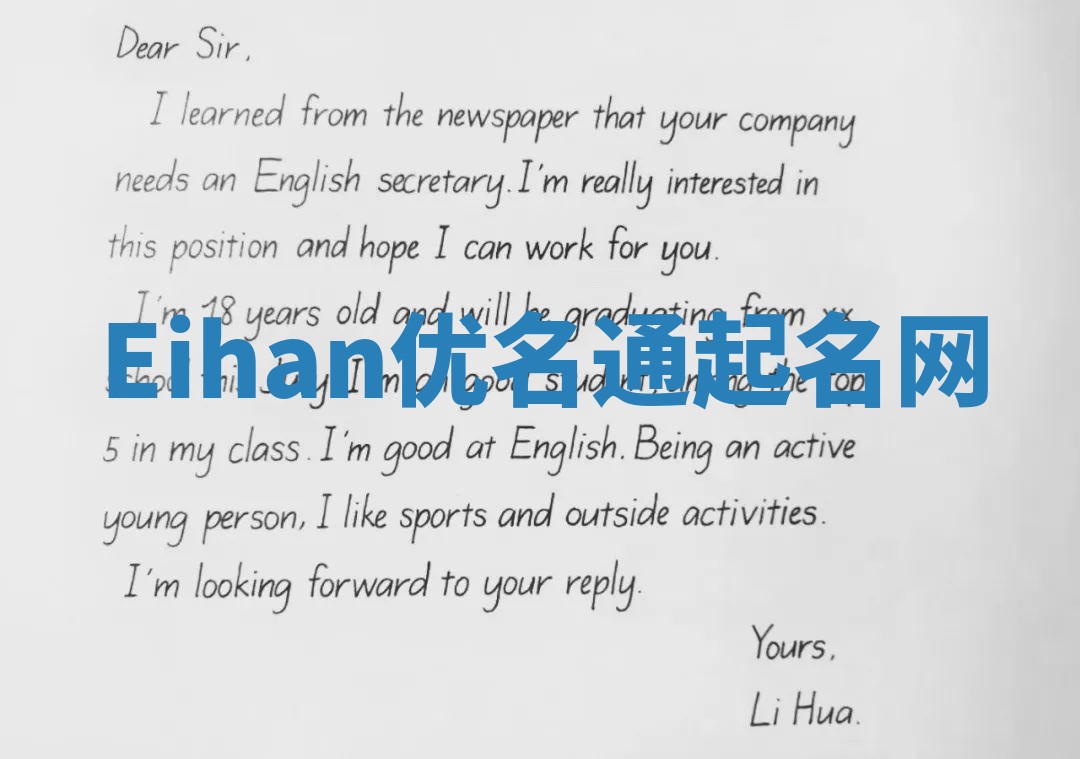 Dear Sir,
I learned from the newspaper that your company
needs an English secretary. I'm really interested in
this position and hope I can work for you.
I'm 18 years old and will be graduating from xx
Eihan优名通起名网
school this July. I'm a good student, among the top
5 in my class. I'm good at English. Being an active
young person, I like sports and outside activities.
I'm looking forward to your reply.
Yours,
Li Hua.